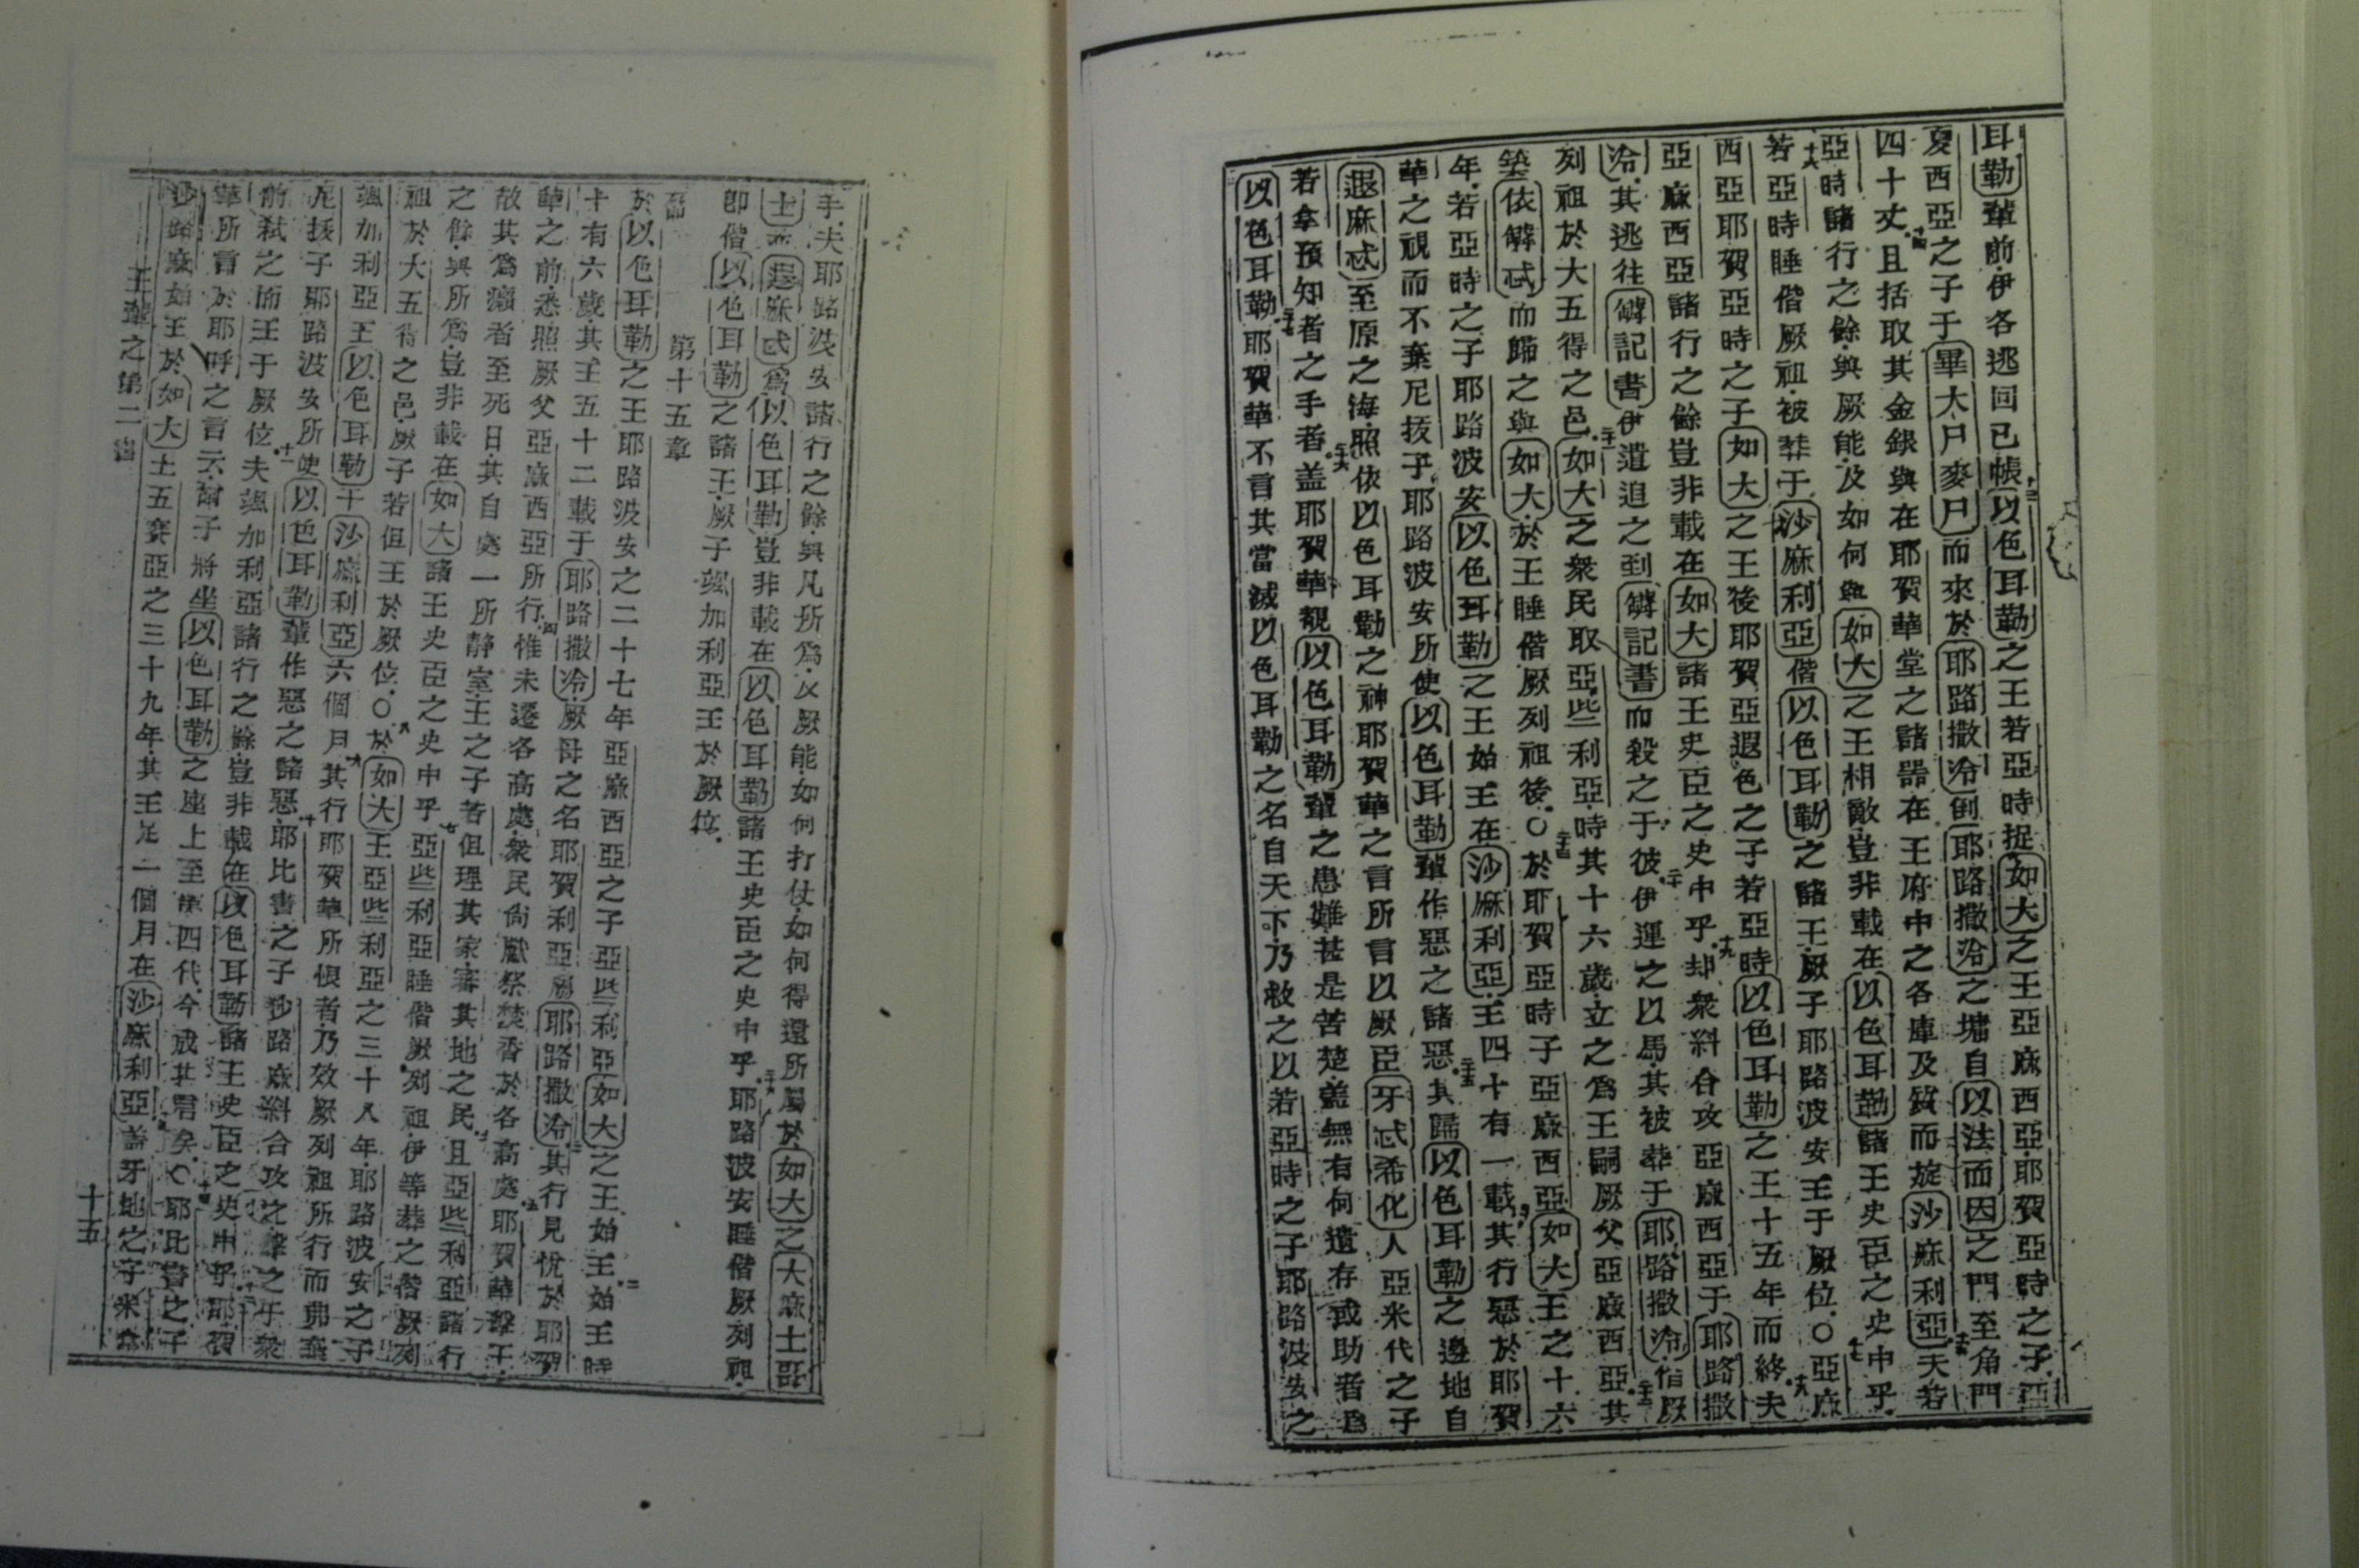 耳勒輩前伊各逃回已帳以色耳勒之王若亞時捉如大之王亞麻西亞耶賀亞時之子亞
夏西亞之子于畢大尸麥尸而來於耶路撒冷倒耶路撒冷之墉自以法而因之門至角門
四十丈且括取其金銀與在耶賀華堂之諸器在王府中之各庫及質而旋沙麻利亞夫若
亞時諸行之餘與厥能及如何與如大之王相敵豈非載在以色耳勒諸王史臣之史中乎
若亞時睡偕厥祖被葬于沙麻利亞偕以色耳勒之諸王厥子耶路波安王于厥位〇亞麻
西亞耶賀亞時之子如大之王後耶賀亞遐色之子若亞時以色耳勒之王十五年而終夫
亞麻西亞諸行之餘豈非載在如大諸王史臣之史中乎却衆斜合攻亞麻西亞于耶路撒
冷其逃往嶙記書伊遣追之到嶙記書而殺之于彼伊運之以馬其被葬于耶路撒冷偕厥
列祖於大五得之邑如大之衆民取亞些利亞時其十六歲立之爲王嗣厥父亞麻西亞其
築依嶙忒而歸之與如大於王睡偕厥列祖後〇於耶賀亞時子亞麻西亞如大王之十六
年若亞時之子耶路波安以色耳勒之王始王在沙麻利亞王四十有一載其行惡於耶賀
華之視而不棄尼拔子耶路波安所使以色耳勒輩作惡之諸惡其歸以色耳勒之邊地自
遐麻忒至原之海照依以色耳勒之神耶賀華之言所言以厥臣牙忒希化人亞米代之子
若拿預知者之手者盖耶賀華覩以色耳勒輩之患難甚是苦楚盖無有何遺存或助者爲
以色耳勒耶賀華不言其當滅以色耳勒之名自天下乃救之以若亞時之子耶路波安之
手夫耶路波安諸行之餘與凡所爲及厥能如何打仗如何得還所屬於如大之大麻士哥
士而遐麻忒爲以色耳勒豈非載在以色耳勒諸王史臣之史中乎耶路波安睡偕厥列祖
即偕以色耳勒之諸王厥子颯加利亞王於厥位
第十五章
於以色耳勒之王耶路波安之二十七年亞麻西亞之子亞些利亞如大之王始王始王時
十有六歲其王五十二載于耶路撒冷厥母之名耶賀利亞屬耶路撒冷其行見悅於耶賀
華之前悉照厥父亞麻西亞所行惟未遷各高處衆民尙獻祭焚香於各高處耶賀華擊王
故其爲癩者至死日其自處一所靜室王之子若但理其家審其地之民且亞些利亞諸行
之餘與所爲豈非載在如大諸王史臣之史中乎亞些利亞睡偕厥列祖伊等葬之偕厥列
祖於大五得之邑厥子若但王於厥位〇於如大王亞些利亞之三十八年耶路波安之子
颯加利亞王以色耳勒于沙麻利亞六個月其行耶賀華所恨者乃效厥列祖所行而弗棄
尼拔子耶路波安所使以色耳勒輩作惡之諸惡耶比書之子沙路麻斜合攻之擊之于衆
前弒之而王于厥位夫颯加利亞諸行之餘豈非載在以色耳勒諸王史臣之史中乎耶賀
華所言於耶呼之言云爾子將坐以色耳勒之座上至第四代今成其君矣〇耶比書之子
沙路麻始王於如大王五賽亞之三十九年其王足一個月在沙麻利亞盖牙地之子米拿
王輩之第二書
十五